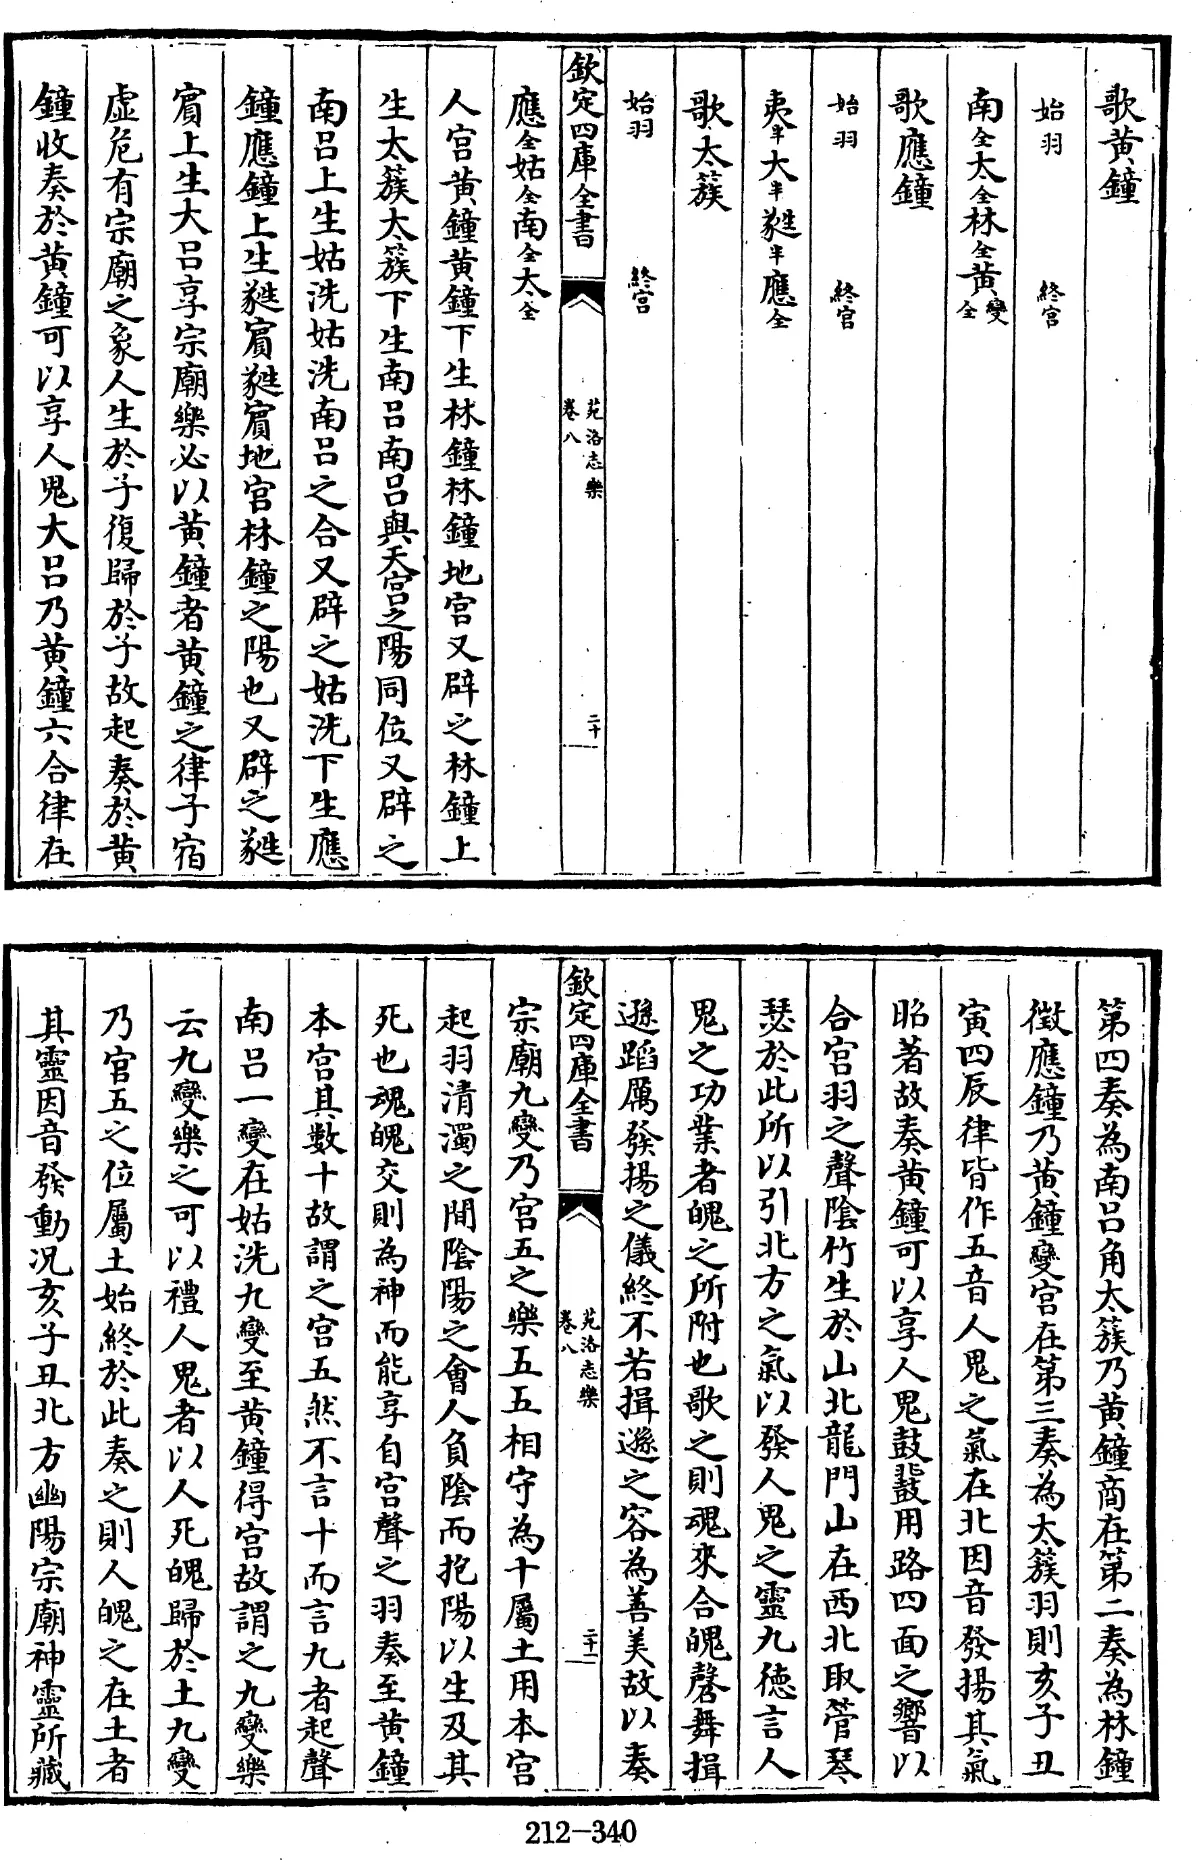 歌黄鐘
始羽　終宫
南全太全林全黄變全
歌應鐘
始羽　終宫
夷半大半蕤半應全
歌太簇
始羽　終宫
欽定四庫全書　苑洛志樂卷八　二十
應全姑全南全太全
人宫黄鐘黄鐘下生林鐘林鐘地宫又辟之林鐘上
生太簇太簇下生南吕南吕與天宫之陽同位又辟之
南吕上生姑洗姑洗南吕之合又辟之姑洗下生應
鐘應鐘上生蕤賔蕤賔地宫林鐘之陽也又辟之蕤
賔上生大吕享宗廟樂必以黄鐘者黄鐘之律子宿
虚危有宗廟之象人生於子復歸於子故起奏於黄
鐘收奏於黄鐘可以享人鬼大吕乃黄鐘六合律在
第四奏為南吕角太簇乃黄鐘商在第二奏為林鐘
徴應鐘乃黄鐘變宫在第三奏為太簇羽則亥子丑
寅四辰律皆作五音人鬼之氣在北因音發揚其氣
昭著故奏黄鐘可以享人鬼鼓鼗用路四面之響以
合宫羽之聲陰竹生於山北龍門山在西北取管琴
瑟於此所以引北方之氣以發人鬼之靈九徳言人
鬼之功業者魄之所附也歌之則魂來合魄磬舞揖
遜蹈厲發揚之儀終不若揖遜之容為善美故以奏
欽定四庫全書　苑洛志樂卷八　二十一
宗廟九變乃宫五之樂五五相守為十屬土用本宫
起羽清濁之間陰陽之會人負陰而抱陽以生及其
死也魂魄交則為神而能享自宫聲之羽奏至黄鐘
本宫其數十故謂之宫五然不言十而言九者起聲
南吕一變在姑洗九變至黄鐘得宫故謂之九變樂
云九變樂之可以禮人鬼者以人死魄歸於土九變
乃宫五之位屬土始終於此奏之則人魄之在土者
其靈因音發動况亥子丑北方幽陽宗廟神靈所藏
212-340